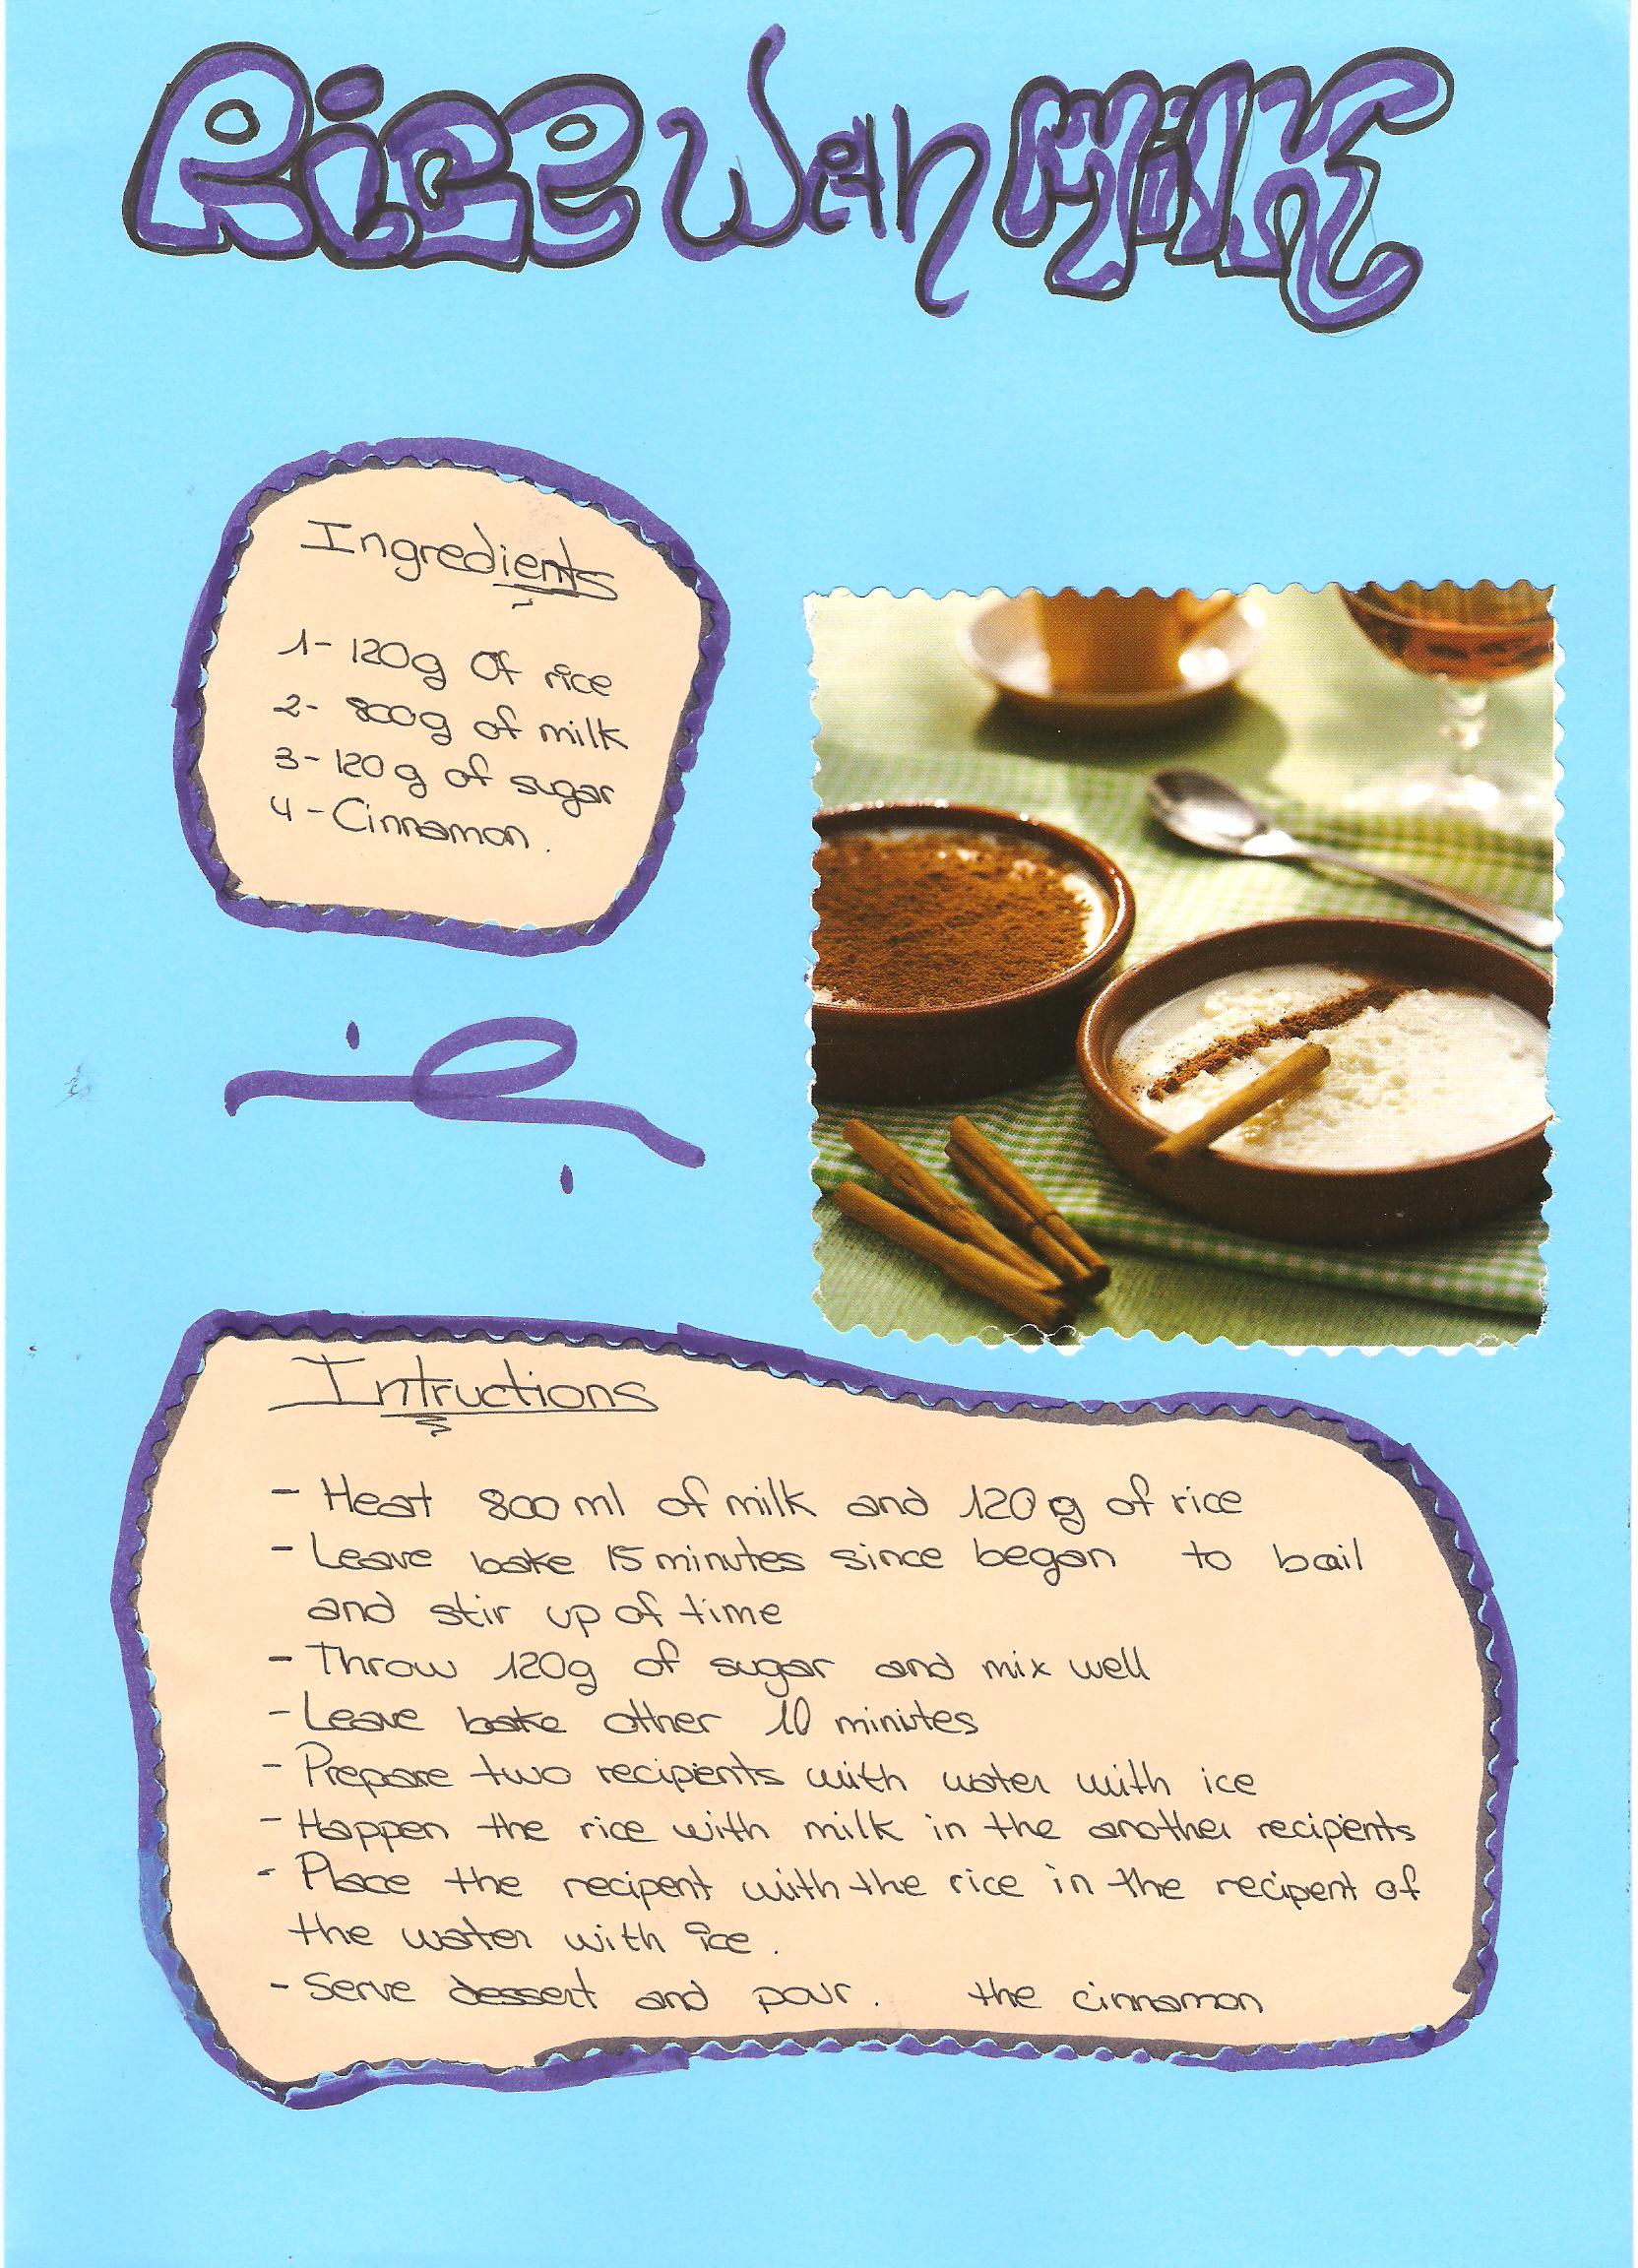 Rice with Milk
Ingredients
1- 120g Of rice
2- 800g of milk
3- 120g of sugar
4- Cinnamon.
Intructions
- Heat 800 ml of milk and 120 g of rice
- Leave bake 15 minutes since began to bail
and stir up of time
- Throw 120g of sugar and mix well
- Leave bake other 10 minutes
- Prepare two recipients with water with ice
- Happen the rice with milk in the another recipients
- Place the recipent with the rice in the recipent of
the water with ice.
- Serve dessert and pour. the cinnamon